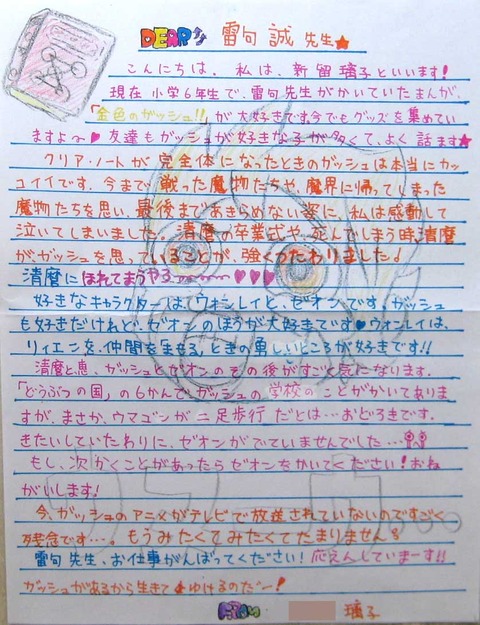 DEAR 雷句 誠 先生★
こんにちは。私は、新留 璃子といいます!
現在 小学6年生で、雷句先生がかいていたまんが、
「金色のガッシュ!!」が大好きです。今でもグッズを集めてい
ますよ〜♥ 友達もガッシュが好きな子が多くて、よく 話ます★
クリア・ノートが 完全体に なったときのガッシュは本当にカッ
コイイです。今まで 戦った魔物たちや、魔界に帰ってしまった
魔物たちを思い、最後まであきらめない姿に、私は感動して
泣いてしまいました。清麿の卒業式や、死んでしまう時、清麿
が、ガッシュを思っていることが、強くつたわりました♪
清麿にほれてまうやろ〜〜♥♥♥
好きなキャラクターは、ウォンレイと、ゼオンです。ガッシュ
も好きだけれど、ゼオンのほうが大好きです♥ウォンレイは、
リィエンを、仲間を守る、ときの勇しいところが好きです!!
清麿と恵、ガッシュとゼオンのその後がすごく気になります。
「どうぶつの国」の6かんで、ガッシュの学校のことがかいてありま
すが、まさか、ウマゴンが二足歩行だとは…おどろきです。
きたいしていたわりに、ゼオンがでていませんでした…
もし、次かくことがあったらゼオンをかいてください!おね
がいします!
今、ガッシュのアニメがテレビで放送されていないのですごく
残念です…。もうみたくてみたくてたまりません。
雷句先生、お仕事がんばってください!応えんしていまーす!!
ガッシュがあるから生きてゆけるのだー!
From 璃子